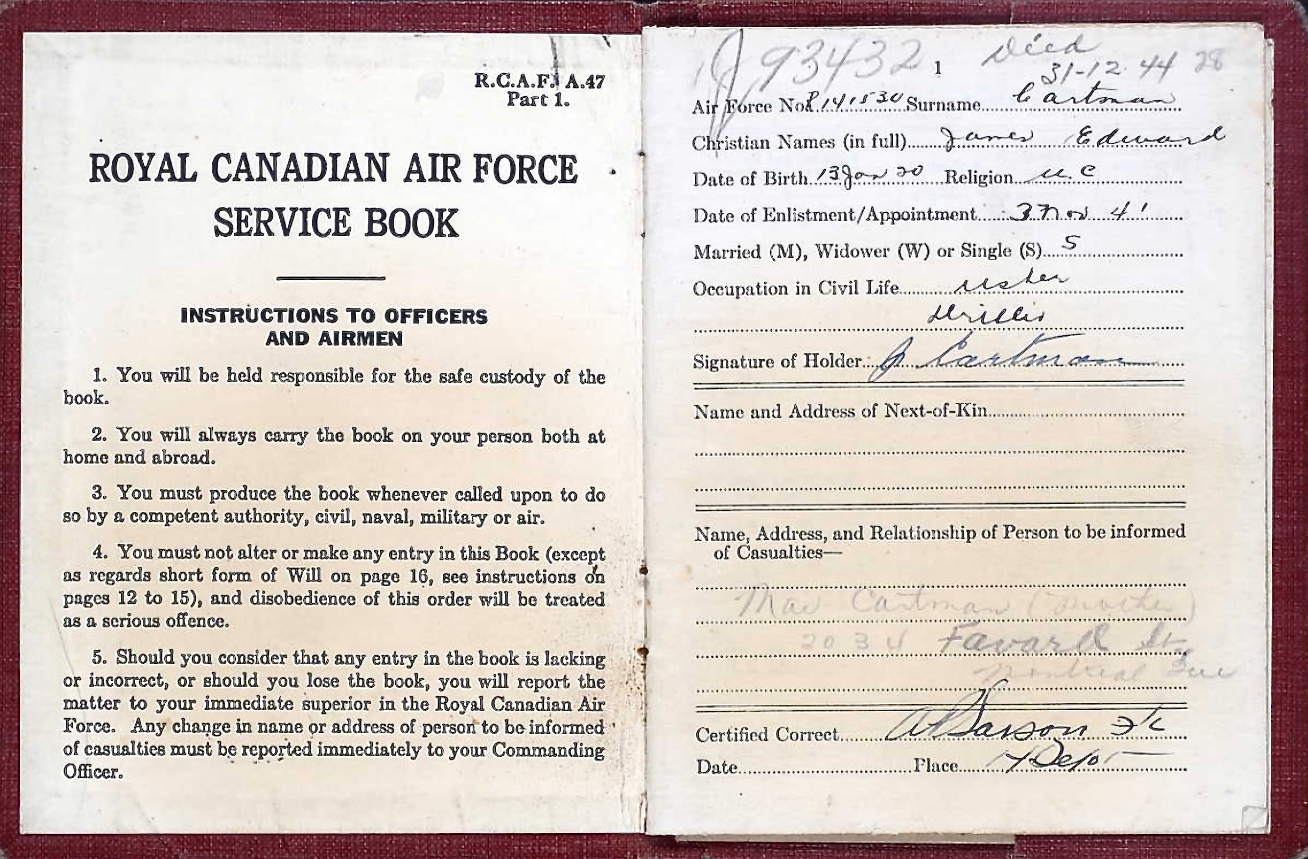 R.C.A.F. A.47
Part 1.
ROYAL CANADIAN AIR FORCE
SERVICE BOOK
INSTRUCTIONS TO OFFICERS
AND AIRMEN
1. You will be held responsible for the safe custody of the
book.
2. You will always carry the book on your person both at
home and abroad.
3. You must produce the book whenever called upon to do
so by a competent authority, civil, naval, military or air.
4. You must not alter or make any entry in this Book (except
as regards short form of Will on page 16, see instructions on
pages 12 to 15), and disobedience of this order will be treated
as a serious offence.
5. Should you consider that any entry in the book is lacking
or incorrect, or should you lose the book, you will report the
matter to your immediate superior in the Royal Canadian Air
Force. Any change in name or address of person to be informed
of casualties must be reported immediately to your Commanding
Officer.
J93432 1 Died
31-12-44 28
Air Force No. R141530 Surname Cartman
Christian Names (in full) James Edward
Date of Birth 13 Jan 20 Religion U.C
Date of Enlistment/Appointment 3 Nov 41
Married (M), Widower (W) or Single (S) S
Occupation in Civil Life Usher
Signature of Holder J Cartman
Name and Address of Next-of-Kin
Name, Address, and Relationship of Person to be informed
of Casualties—
Mae Cartman (Mother)
2034 Favard St
Montreal Que
Certified Correct F/L
Date Place Depot